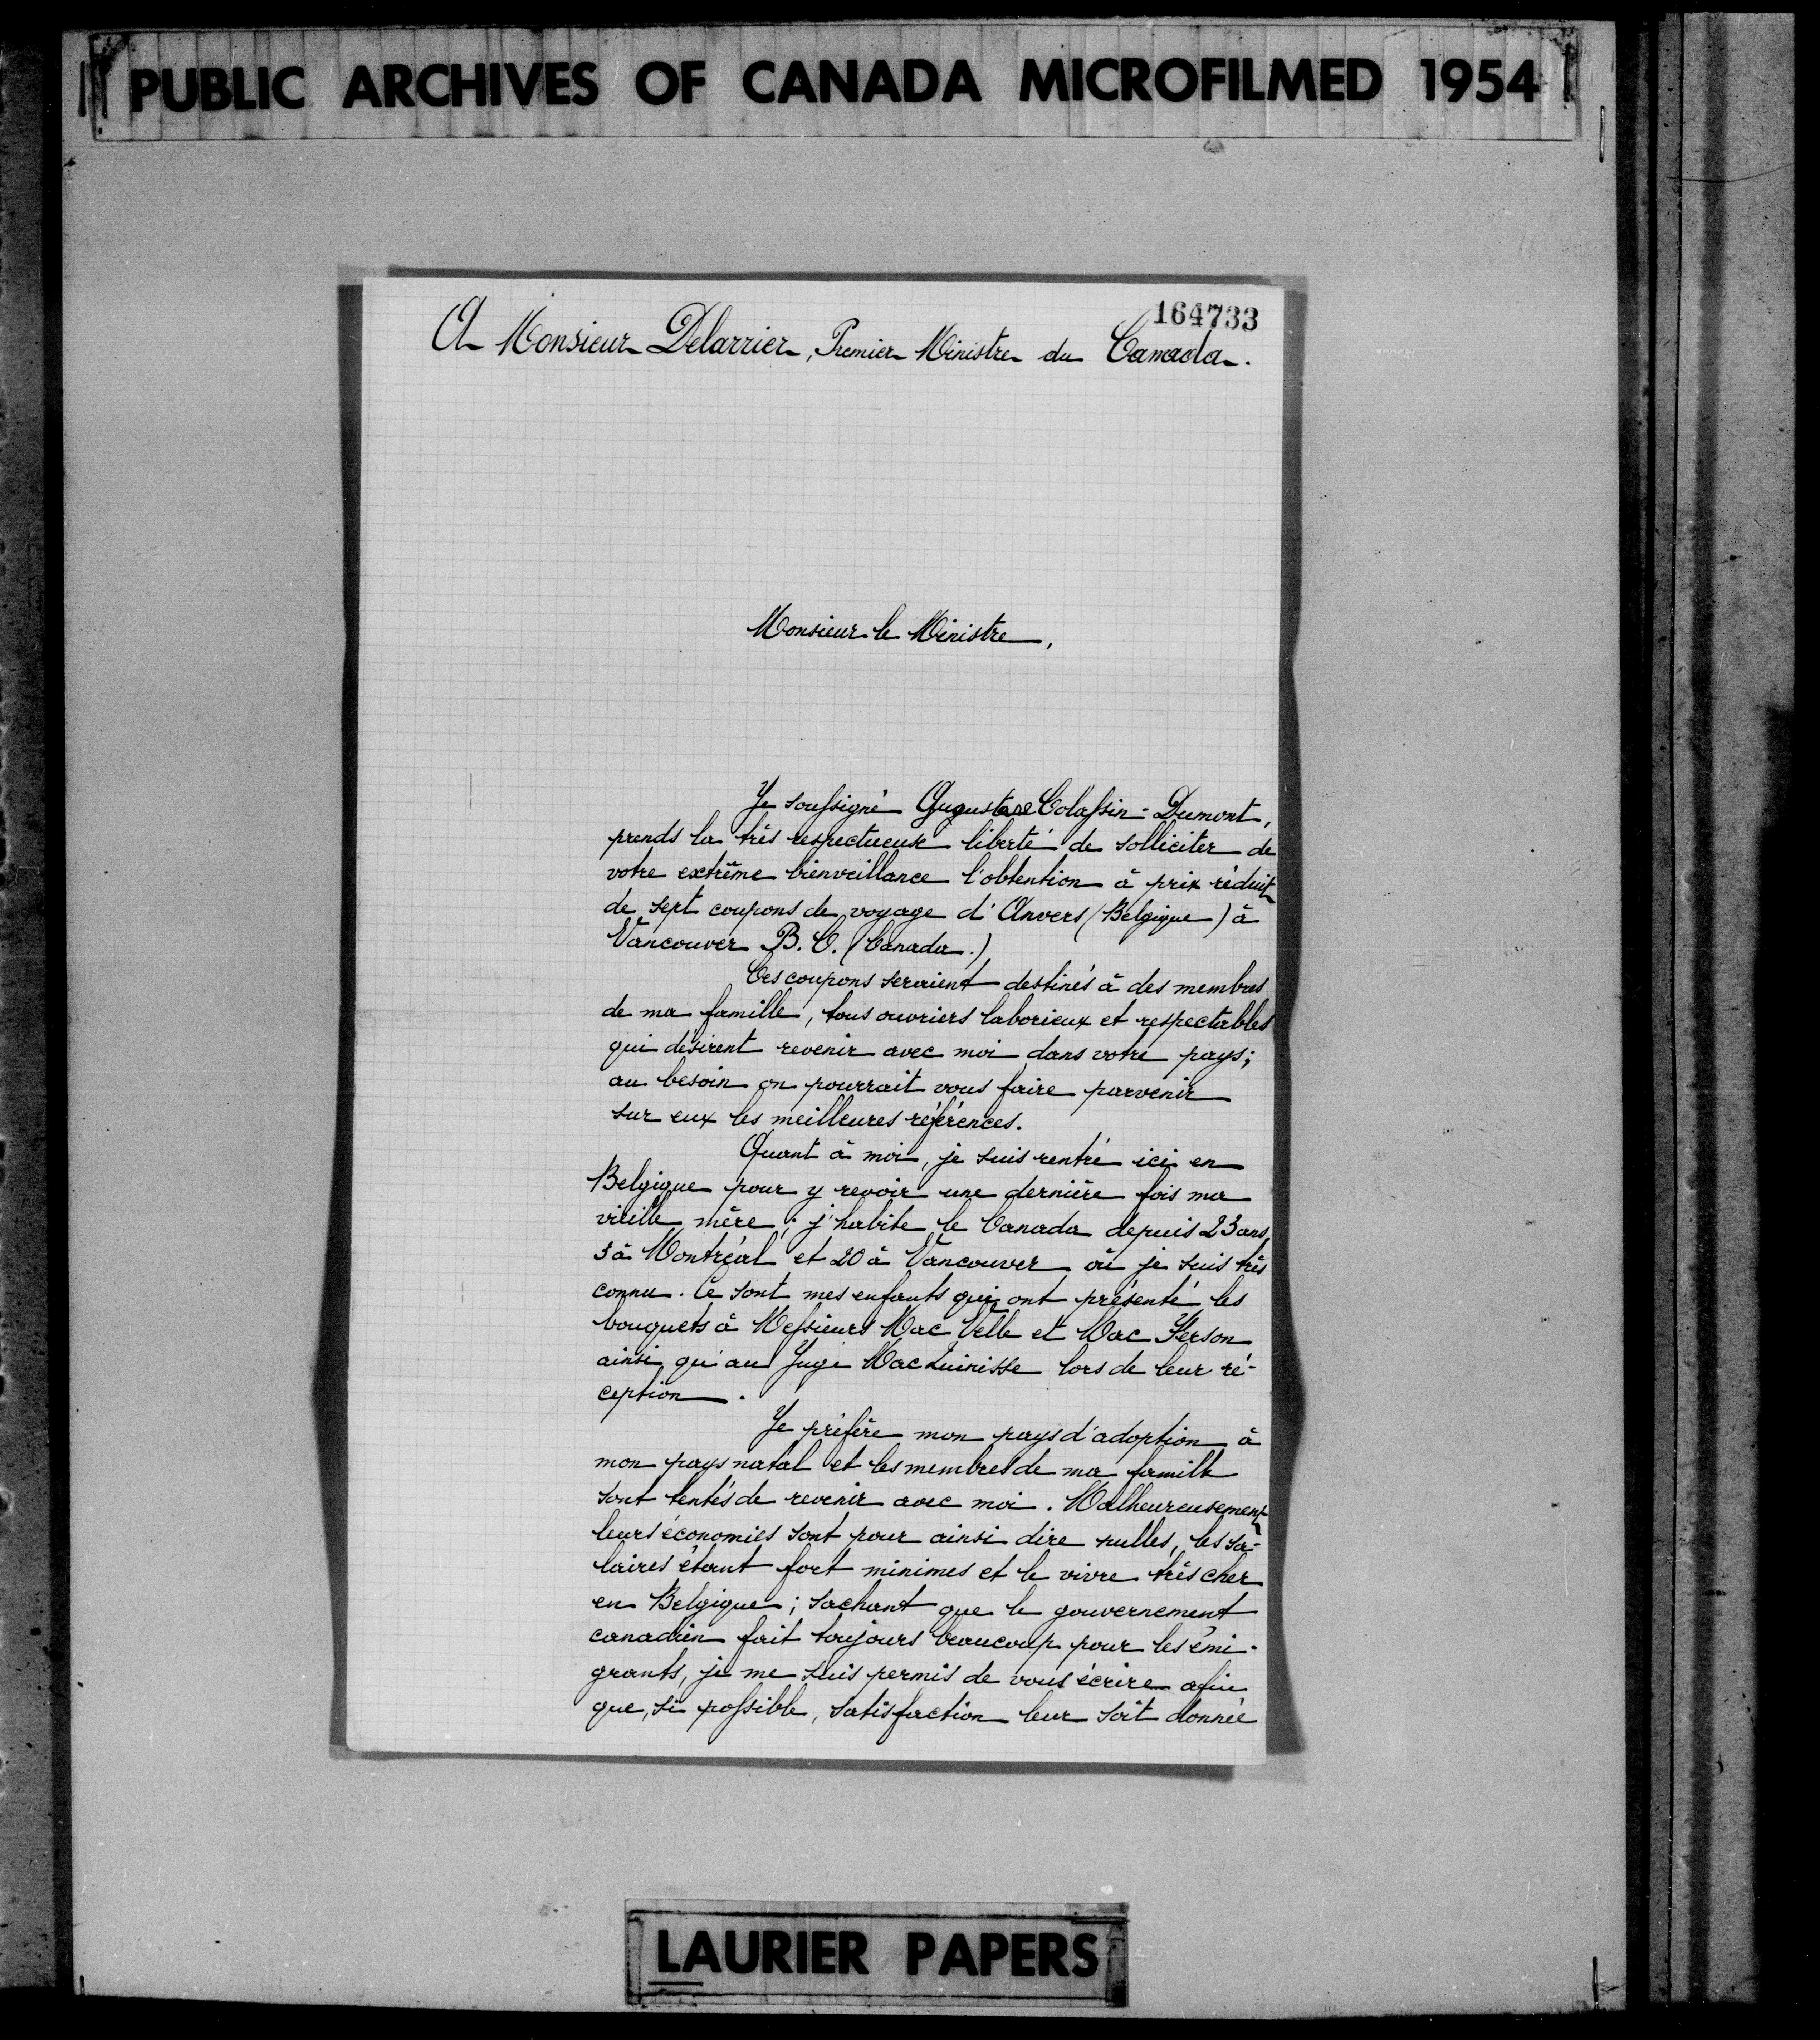 PUBLIC ARCHIVES OF CANADA MICROFILMED 1954
164733
A Monsieur Delarrier, Premier Ministre du Canada.
Monsieur le Ministre,
Je soussigné Auguste Colassin-Dumont,
prends la très respectueuse liberté de solliciter de
votre extrême bienveillance l'obtention à prix réduit
de sept coupons de voyage d'Anvers (Belgique) à
Vancouver B. C. (Canada.)
Ces coupons seraient destinés à des membres
de ma famille, tous ouvriers laborieux et respectables
qui désirent revenir avec moi dans votre pays;
au besoin on pourrait vous faire parvenir
sur eux les meilleures références.
Quant à moi, je suis rentré ici en
Belgique pour y revoir une dernière fois ma
vieille mère; j'habite le Canada depuis 23 ans,
3 à Montréal et 20 à Vancouver où je suis très
connu. Ce sont mes enfants qui ont présenté les
bouquets à Messieurs Mac Velle et Mac Ferson
ainsi qu'au Juge Mac Quinisse lors de leur ré-
ception.
Je préfère mon pays d'adoption à
mon pays natal et les membres de ma famille
sont tentés de revenir avec moi. Malheureusement
leurs économies sont pour ainsi dire nulles, les sa-
laires étant fort minimes et le vivre très cher
en Belgique; sachant que le gouvernement
canadien fait toujours beaucoup pour les émi-
grants, je me suis permis de vous écrire afin
que, si possible, satisfaction leur soit donnée
LAURIER PAPERS